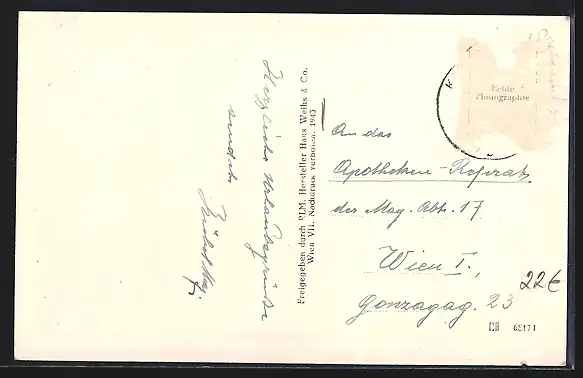 Herzliche Urlaubsgrüße
sendet
Freigegeben durch RLM. Hersteller Hans Weihs & Co.
Wien VII. Nachdruck verboten. 1943
Echte
Photographie
An das
Apotheken-Referat
der Mag. Abt. 17
Wien I.,
Gonzagag. 23
22€
68171